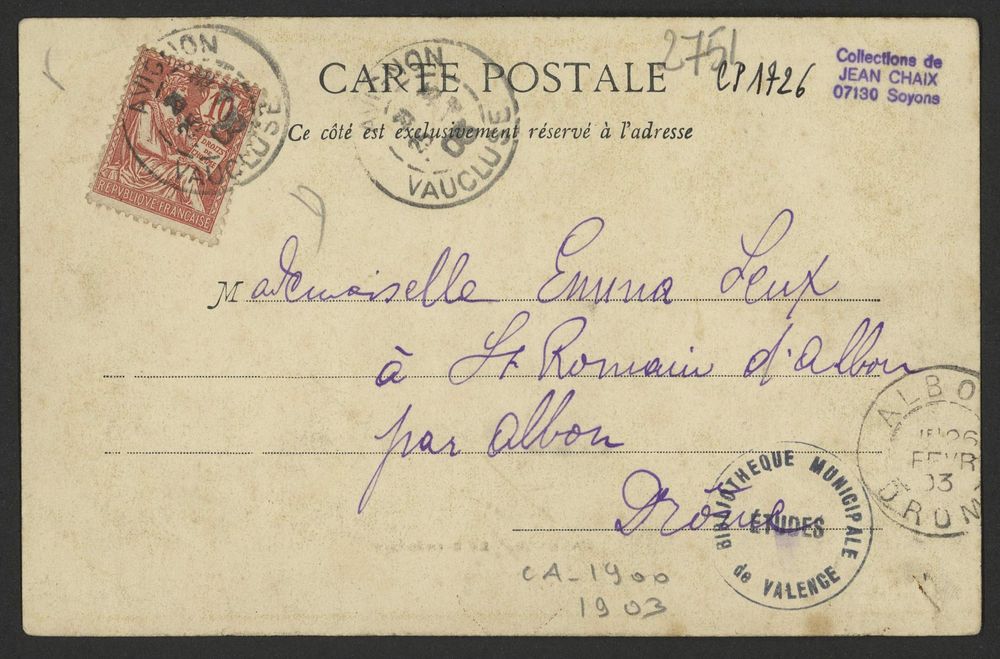 AVIGNON
VAUCLUSE
10
REPVBLIQVE FRANÇAISE
AVIGNON
VAUCLUSE
CARTE POSTALE
2751
CP1726
Collections de
JEAN CHAIX
07130 Soyons
Ce côté est exclusivement réservé à l'adresse
Mademoiselle Emma Leux
à St Romain d'Albon
par Albon
Drôme
ALBO
26
FEVR
03
DROM
BIBLIOTHEQUE MUNICIPALE
ÉTUDES
de VALENCE
CA-1900
1903